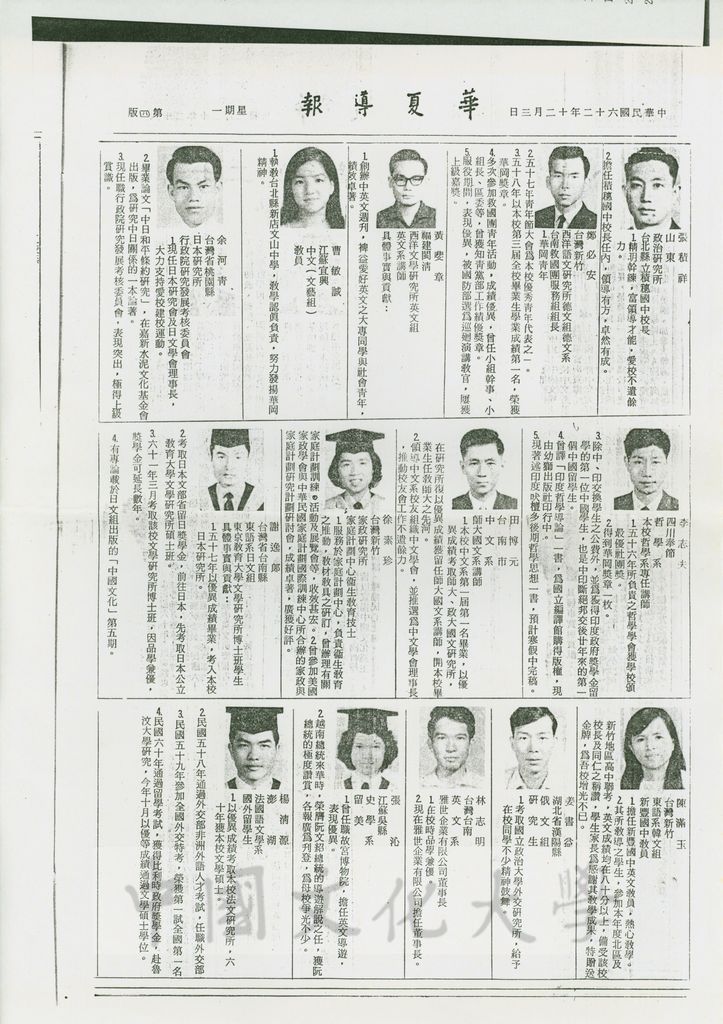 中華民國六十二年十二月三日
華夏導報
星期一
第四版
張積祥
山東
政治研究所
台北縣立積穗國中校長
1.精明幹練，富領導才能，愛校不遺餘
力。
2.擔任積穗國中校長任內，領導有方，卓然有成。
鄭必安
台灣新竹
西洋語文研究所德文組德文系
台南救國團服務組組長
1.華岡青年
2.五十七年青年節大會爲本校優秀青年代表之一。
3.五十八年以本校第三屆全校畢業生學業成績第一名，榮獲
華岡獎章。
4.多次參加救國團青年活動，成績優異，曾任小組幹事、小
組長、區委等，曾獲知青黨部工作績優獎章。
5.服役期間，表現優異，被國防部選爲巡迴演講教官，屢獲
上級嘉獎。
黃斐章
福建閩清
西洋文學研究所英文組
英文系講師
具體事實與貢獻：
1.創辦中英文週刊，裨益愛好英文之大專同學與社會青年，
績效卓著。
曹敏誠
江蘇宜興
中文（文藝組）
教員
1.執教台北縣新店文山中學，教學認真負責，努力發揚華岡
精神。
余河青
台灣省桃園縣
日本研究所
行政院研究發展考核委員會
1.現任日本研究會及日文學會理事長，
大力支持愛校建校運動。
2.畢業論文「中日和平條約研究」，在嘉新水泥文化基金會
出版，爲研究中日關係的一本論著。
3.現任職行政院研究發展考核委員會，表現突出，極得上級
賞識。
李志夫
四川奉節
哲學系
本校哲學系專任講師
1.五十六年所負責之哲學學會獲學校頒
最優社團獎。
2.得到華岡獎章一枚。
3.除中、印交換學生之公費外，並爲獲得印度政府獎學金留
學的第一位中國學生，也是中印斷絕邦交後廿年來的第一
個中國留學生。
4.曾譯「印度哲學導論」一書，爲國立編譯館購得版權，現
由幼獅出版社印行中。
5.現著述印度吠檀多後期哲學思想一書，預計寒假中完稿。
田博元
台南市
中文系
師大國文系講師
1.本校中文系第一屆第一名畢業，以優
異成績考取師大、政大國文研究所，
在研究所復以優異成績獲留任師大國文系講師，開本校畢
業生任教師大之先河。
2.領導中文系校友組織中文學會，並推選爲中文學會理事長
，推動校友會工作不遺餘力。
徐素珍
台灣新竹
家政研究所
家庭計劃中心衛生教育技士
1.服務於家庭計劃中心，負責衛生教育
之推動，教材教具之研訂，曾辦理有關
家庭計劃訓練，活動及展覽會等，收效甚宏。2.曾參加美國
家政學會與中華民國家庭計劃國際訓練中心所合辦的家政與
家庭計劃研究計劃研討會，成績卓著，廣獲好評。
謝逸郎
台灣省台南縣
東語系日文組
東京教育大學文學研究所博士班學生
具體事實與貢獻：
1.五十七年以優異成績畢業，考入本校
日本研究所。
2.考取日本文部省留日獎學金，前往日本，先考取日本公立
教育大學文學研究所碩士班。
3.六十一年三月考取該校文學研究所博士班，因品學兼優，
獎學金可延長數年。
4.有專論載於日文組出版的「中國文化」第五期。
陳滿玉
台灣新竹
東語系韓文組
新豐國中教員
1.擔任新豐國中英文教員，熱心教學。
2.其所教導之學生，參加本年度北區及
新竹地區高中聯考，英文成績均在八十分以上，備受該校
校長及同仁之稱讚，學生家長爲感謝其教學成果，特贈送
金牌，爲吾校增光不已。
姜書益
湖北省漢陽縣
俄文組
研究生
1.考取國立政治大學外交研究所，給予
在校同學不少精神鼓舞。
林志明
台灣台南
英文系
雅世企業有限公司董事長
1.在校時品學兼優。
2.現在雅世企業有限公司擔任董事長。
張沁
江蘇吳縣
史學系
留美
1.曾任職故宮博物院，擔任英文導遊，
表現優異。
2.越南總統來華時，榮膺阮文紹總統的導遊解說之任，獲阮
總統的極度讚賞，各報廣爲刊登，爲母校爭光不少。
楊清源
澎湖
法國語文學系
國外留學生
1.以優異成績考取本校法文研究所，六
十年獲本校文學碩士。
2.民國五十八年通過外交部非洲外語人才考試，任職外交部
3.民國五十九年參加全國外交特考，榮獲第一試全國第一名
4.民國六十年通過留學考試，獲得比利時政府獎學金，赴魯
汶大學研究，今年十月以優等成績通過文學碩士學位。
中國文化大學